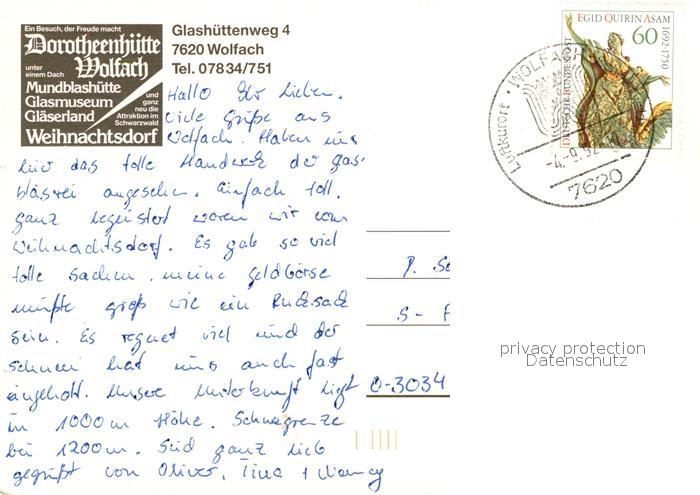 Ein Besuch, der Freude macht
Dorotheenhütte
unter einem Dach
Wolfach
Mundblashütte
Glasmuseum
Gläserland
und ganz neu die Attraktion im Schwarzwald
Weihnachtsdorf
Glashüttenweg 4
7620 Wolfach
Tel. 07834/751
EGID QUIRIN ASAM
1692-1750
60
DEUTSCHE BUNDESPOST
Luftkurort · WOLFACH
-4.-9.92
7620
Hallo Ihr Lieben.
viele Grüße aus
Wolfach. Haben uns
hier das tolle Handwerk der Glas-
bläserei angesehen. Einfach toll.
ganz begeistert waren wir vom
Weihnachtsdorf. Es gab so viel
tolle Sachen. meine Geldbörse
müßte groß wie ein Rucksack
sein. Es regnet viel und der
Schnee hat uns auch fast
eingeholt. Unsere Unterkunft liegt
in 1000m Höhe. Schneegrenze
bei 1200m. Seid ganz lieb
gegrüßt von Oliver, Tina +
O-3034
privacy protection
Datenschutz